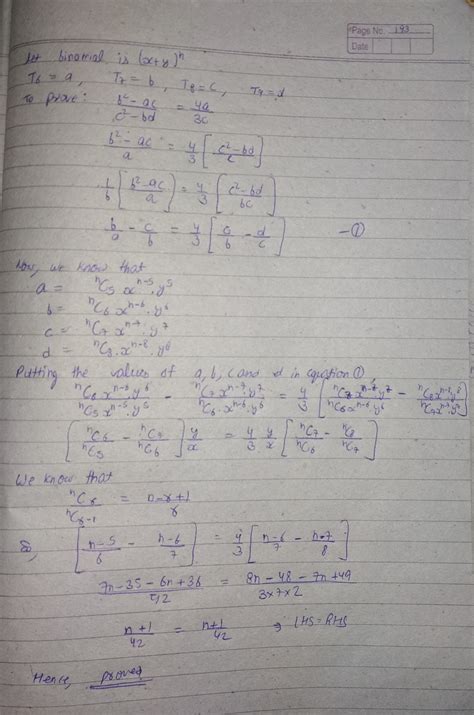 Page No. 193
Date
let binomial is (x+y)^n
T6 = a, T7 = b, T8 = c, T9 = d
To prove: (b² - ac)/(c² - bd) = 4a/3c
(b² - ac)/a = 4/3 [(c² - bd)/c]
1/b [(b² - ac)/a] = 4/3 [(c² - bd)/bc]
b/a - c/b = 4/3 [c/b - d/c] —①
Now, we know that
a = ⁿC5 x^(n-5) . y^5
b = ⁿC6 x^(n-6) . y^6
c = ⁿC7 x^(n-7) . y^7
d = ⁿC8 . x^(n-8) . y^8
Putting the values of a, b, c and d in equation ①,
ⁿC6 x^(n-6) . y^6 / ⁿC5 x^(n-5) . y^5 - ⁿC7 x^(n-7) . y^7 / ⁿC6 . x^(n-6) . y^6 = 4/3 [ⁿC7 x^(n-7) . y^7 / ⁿC6 x^(n-6) y^6 - ⁿC8 x^(n-8) y^8 / ⁿC7 x^(n-7) y^7]
[ⁿC6/ⁿC5 - ⁿC7/ⁿC6] y/x = 4/3 y/x [ⁿC7/ⁿC6 - ⁿC8/ⁿC7]
We know that
ⁿCr / ⁿCr-1 = (n-r+1)/r
So, [(n-5)/6 - (n-6)/7] = 4/3 [(n-6)/7 - (n-7)/8]
(7n - 35 - 6n + 36)/42 = (8n - 48 - 7n + 49)/(3×7×2)
(n+1)/42 = (n+1)/42 ⇒ LHS = RHS
Hence, proved